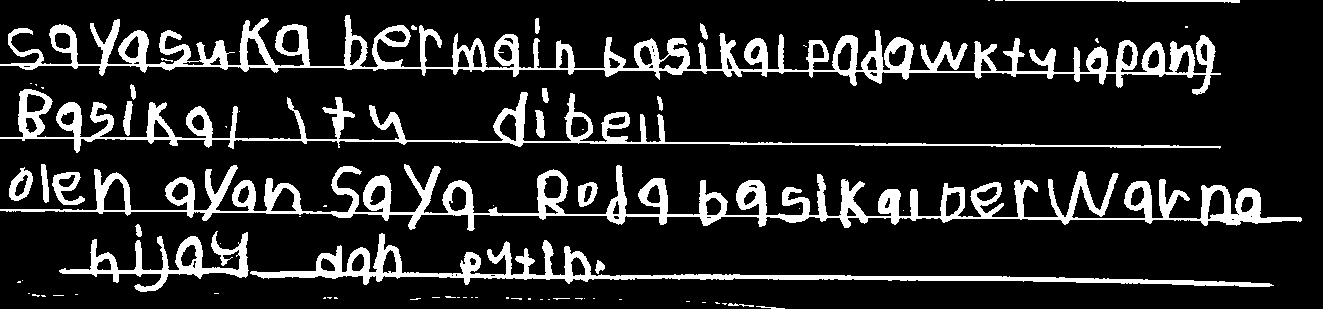 sayasuka bermain basikal padawktu lapang
Basikal itu dibeli
oleh ayah saya. Roda basikal berwarna
hijau dan putih.